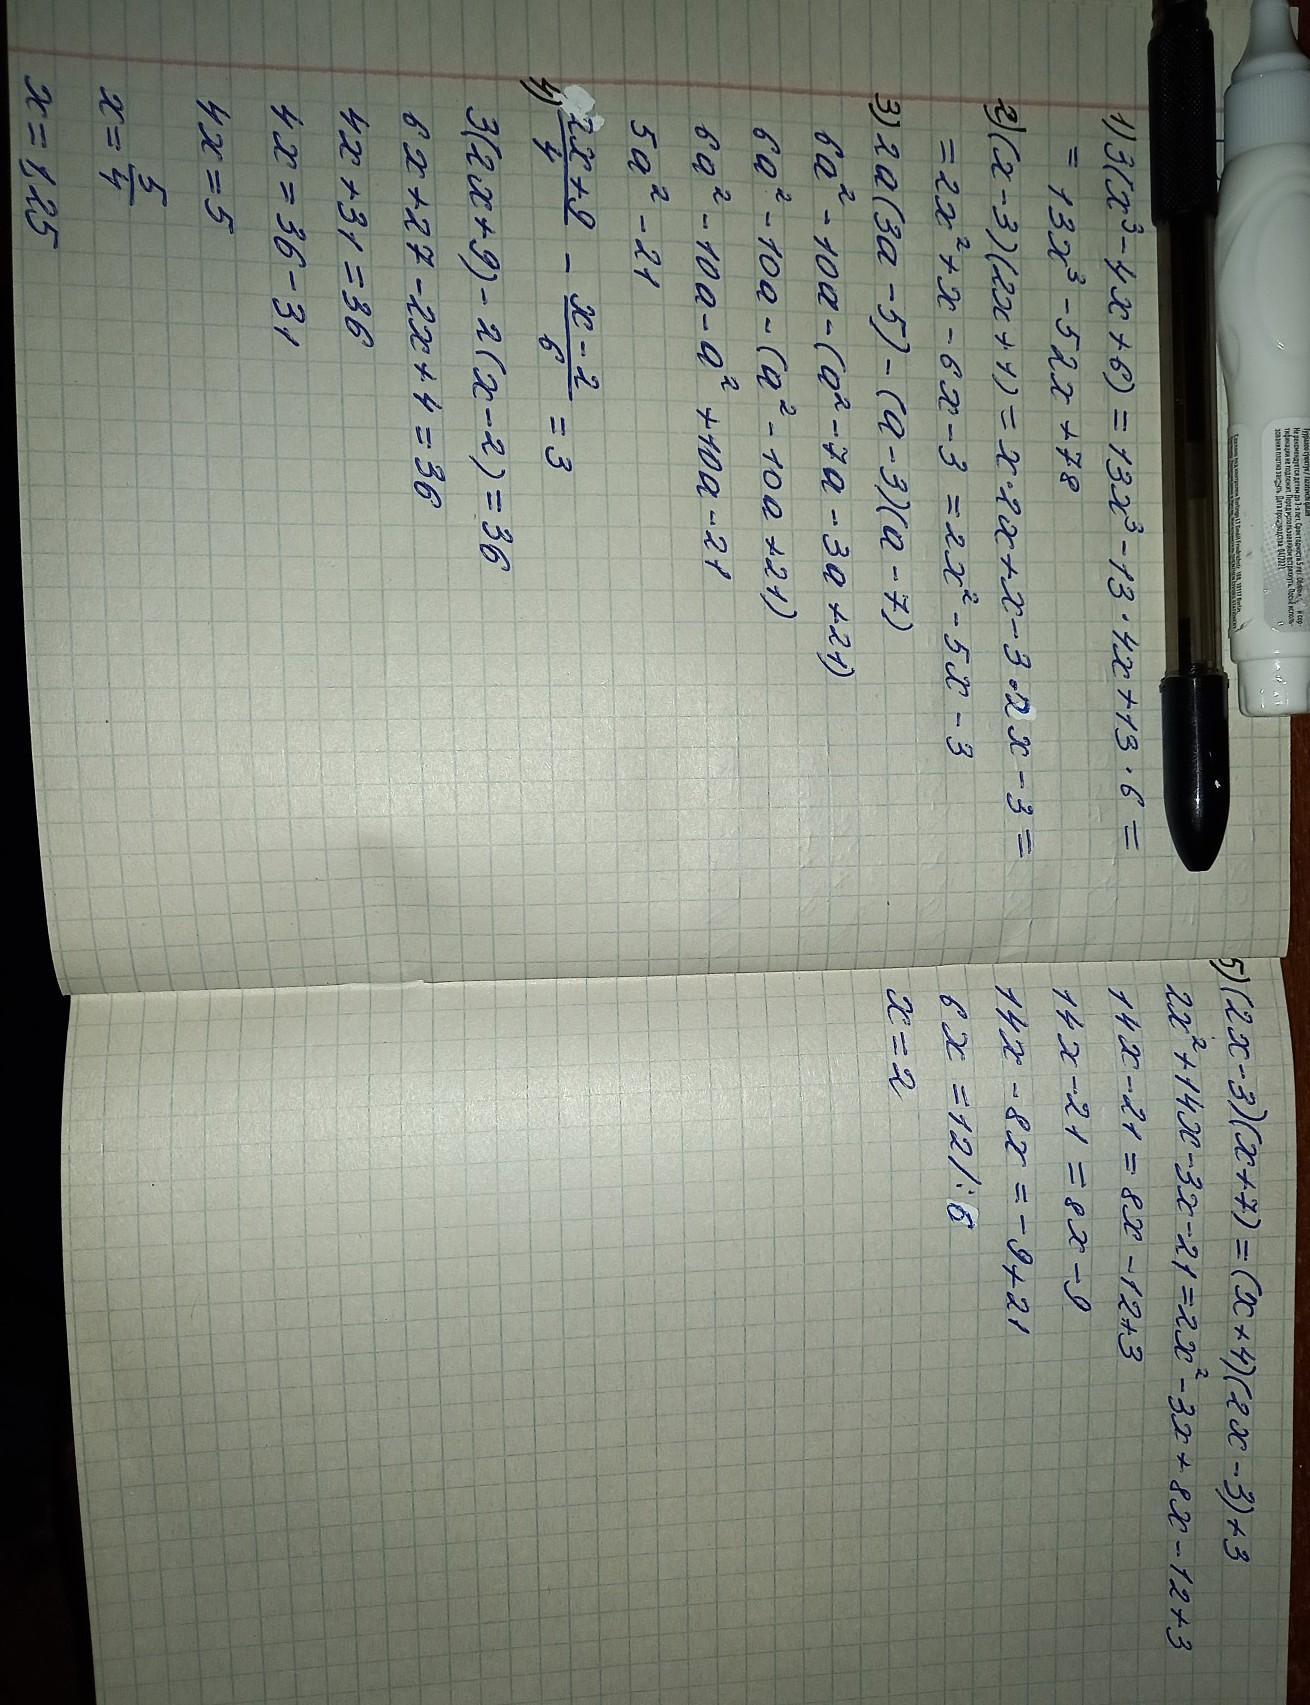 1) 3(x³-4x+6)=13x³-13·4x+13·6=
= 13x³-52x+78
2)(x-3)(2x+1)=x·2x+x-3·2x-3=
=2x²+x-6x-3=2x²-5x-3
3) 2a(3a-5)-(a-3)(a-7)
6a²-10a-(a²-7a-3a+21)
6a²-10a-(a²-10a+21)
6a²-10a-a²+10a-21
5a²-21
4) (2x+9)/4 - (x-2)/6 = 3
3(2x+9)-2(x-2)=36
6x+27-2x+4=36
4x+31=36
4x=36-31
4x=5
x=5/4
x=1,25
5)(2x-3)(x+7)=(x+4)(2x-3)+3
2x²+14x-3x-21=2x²-3x+8x-12+3
14x-21=8x-12+3
14x-21=8x-9
14x-8x=-9+21
6x=12/:6
x=2